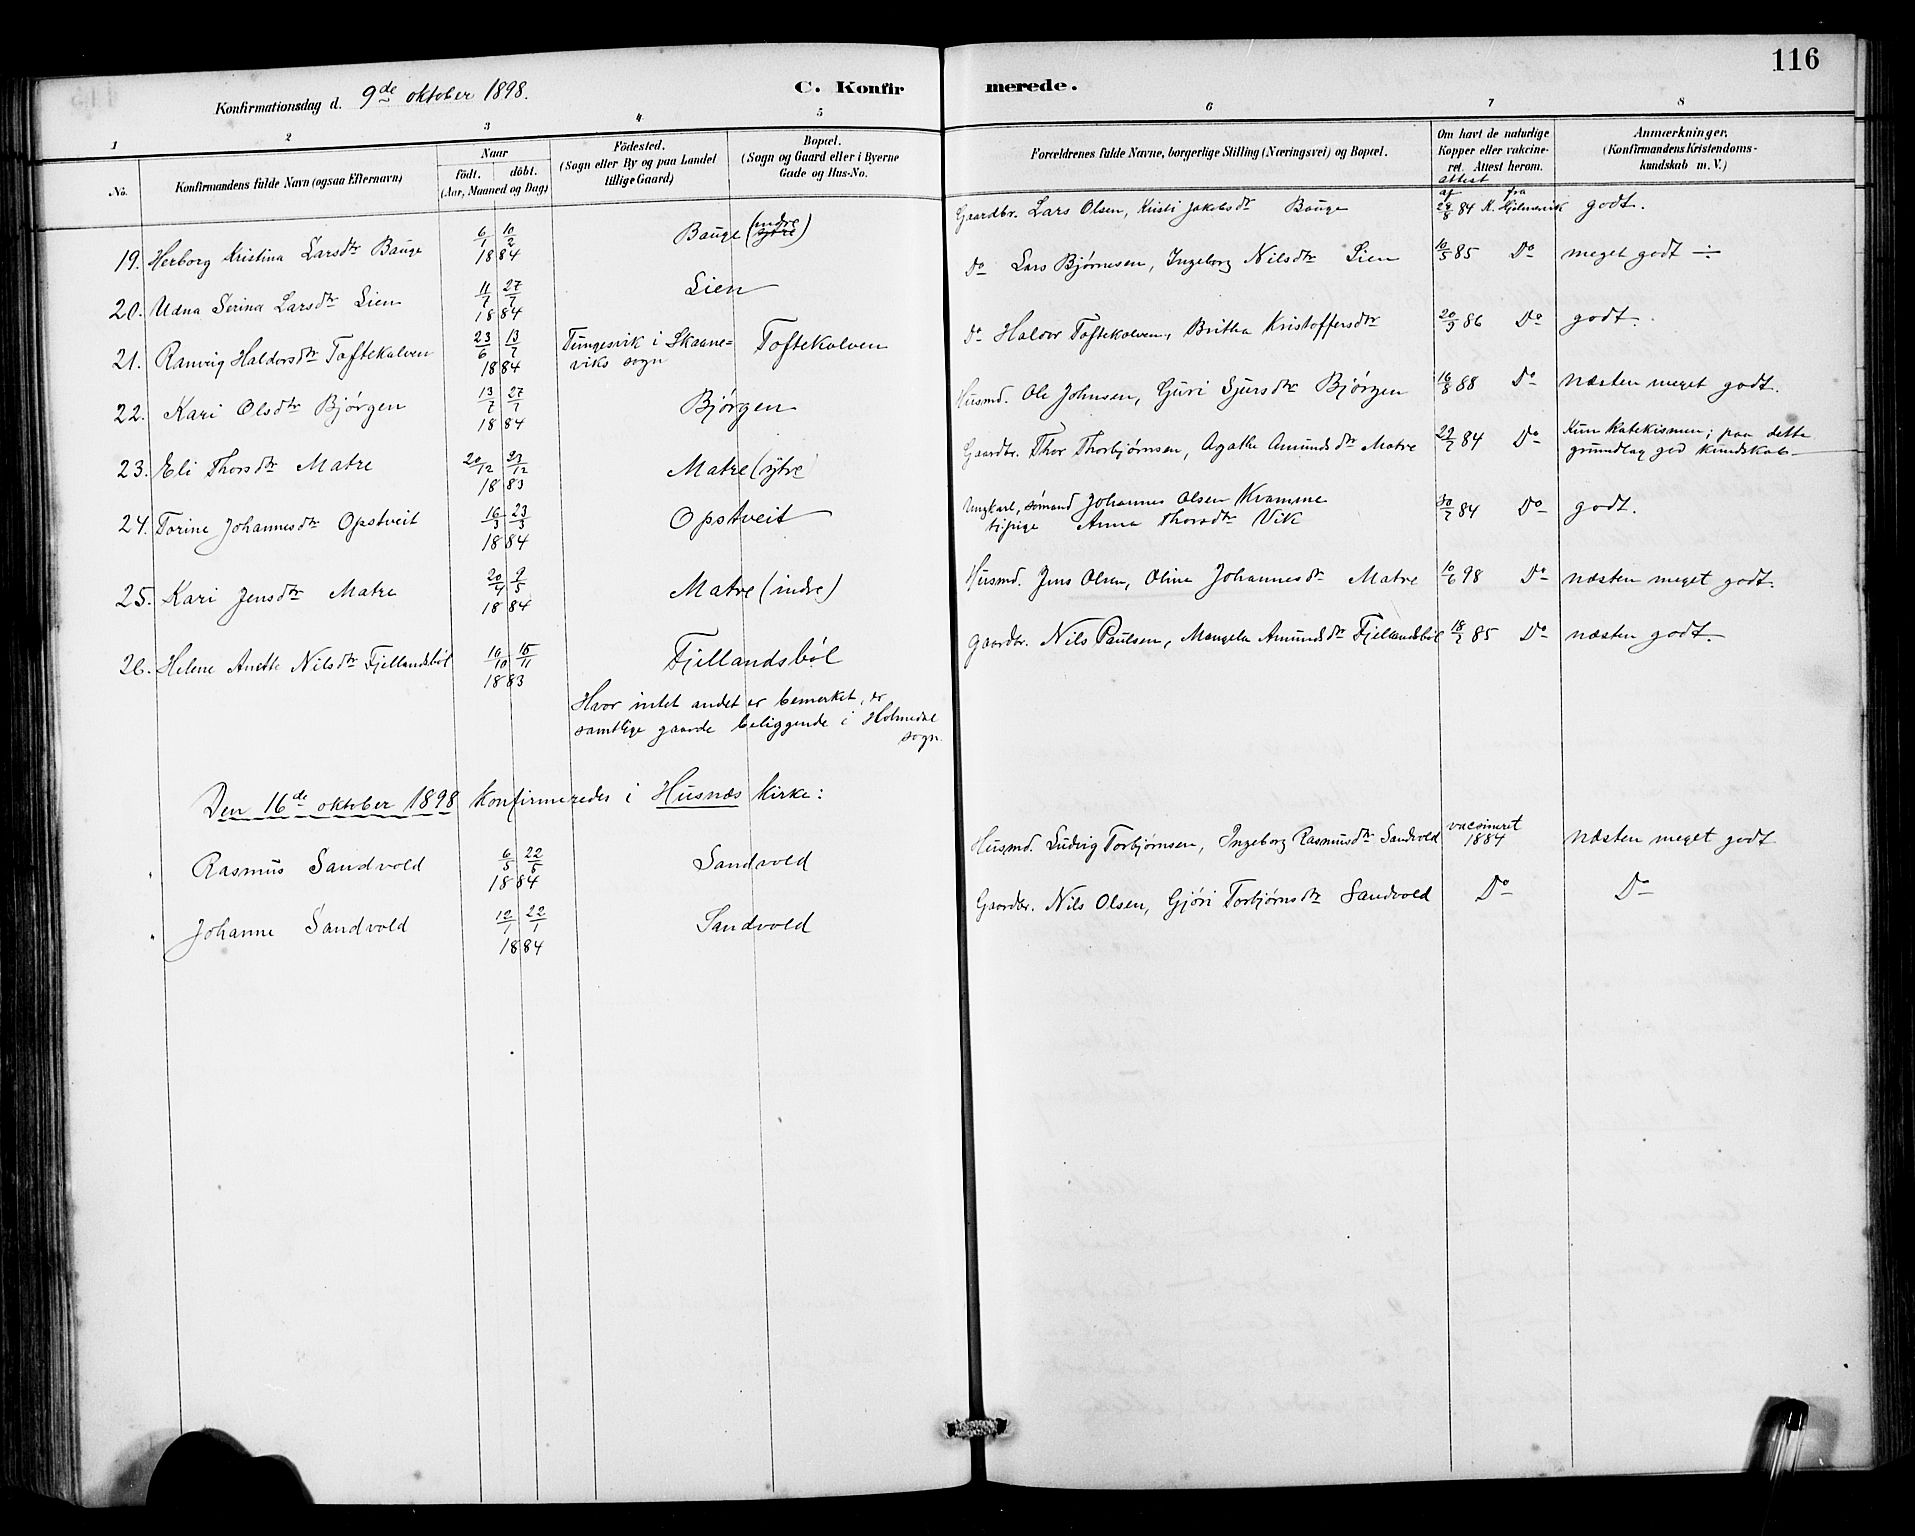 116
Konfirmationsdag d. 9de oktober 1898.
C. Konfir merede.
1 2 3 4 5 6 7 8
No. Konfirmandens fulde Navn (ogsaa Efternavn)
Naar
født. døbt.
(Aar, Maaned og Dag)
Födested.
(Sogn eller By og paa Landet
tillige Gaard)
Bopæl.
(Sogn og Gaard eller i Byerne
Gade og Hus-No.
Forældrenes fulde Navne, borgerlige Stilling (Næringsvei) og Bopæl.
Om havt de naturlige
Kopper eller vakcine-
ret. Attest herom.
Anmærkninger.
(Konfirmandens Kristendoms-
kundskab m. V.)
19. Herborg Kristina Larsdtr Bauge 6/1 10/2 1884 Bauge (indre ytre) Gaardbr. Lars Olsen, Kristi Jakobsdtr Bauge attest af 29/8 84 fra K. Hjelmervik godt.
20. Udna Serina Larsdtr Lien 11/7 27/7 1884 Lien Do Lars Bjørnesen, Ingeborg Nilsdtr Lien 10/5 85 Do meget godt ÷
21. Ranveig Haldorsdtr Toftekalven 23/6 13/7 1884 Tungesvik i Skaane-
viks sogn Toftekalven Do Haldor Toftekalven, Britha Kristoffersdtr 20/9 86 Do godt.
22. Kari Olsdtr Bjørgen 13/7 27/7 1884 Bjørgen Husmd. Ole Johnsen, Guri Sjursdtr Bjørgen 16/8 88 Do næsten meget godt.
23. Eli Thorsdtr Matre 20/12 23/12 1883 Matre (ytre Gaardbr. Thor Thorbjørnsen, Agathe Amundsdtr Matre 22/7 84 Do Kun katekismen; paa dette
grundlag god kundskab
24. Torine Johannesdtr Opstveit 16/3 23/3 1884 Opstveit Ungkarl, sømand Johannes Olsen Kvamme
tj.pige Anna Thorsdtr Vik 30/7 84 Do godt.
25. Kari Jensdtr Matre 20/4 9/5 1884 Matre (indre) Husmd. Jens Olsen, Oline Johannesdtr Matre 10/6 98 Do næsten meget godt.
26. Helene Anette Nilsdtr Fjellandsbøl 19/10 15/11 1883 Fjellandsbøl Gaardbr. Nils Paulsen, Mangela Amundsdtr Fjellandsbøl 18/7 85 Do næsten godt.
Hvor intet andet er bemerket, er
samtlige gaarde beliggende i Holmedal
sogn.
Den 16de oktober 1898 konfirmeredes i Husnæs kirke:
" Rasmus Sandvold 6/5 22/5 1884 Sandvold Husmd. Ludvig Torbjørnsen, Ingeborg Rasmusdtr Sandvold vacsineret 1884 næsten meget godt
" Johanne Sandvold 12/1 22/1 1884 Sandvold Gaardbr. Nils Olsen, Gjøri Torbjørnsdtr Sandvold Do Do